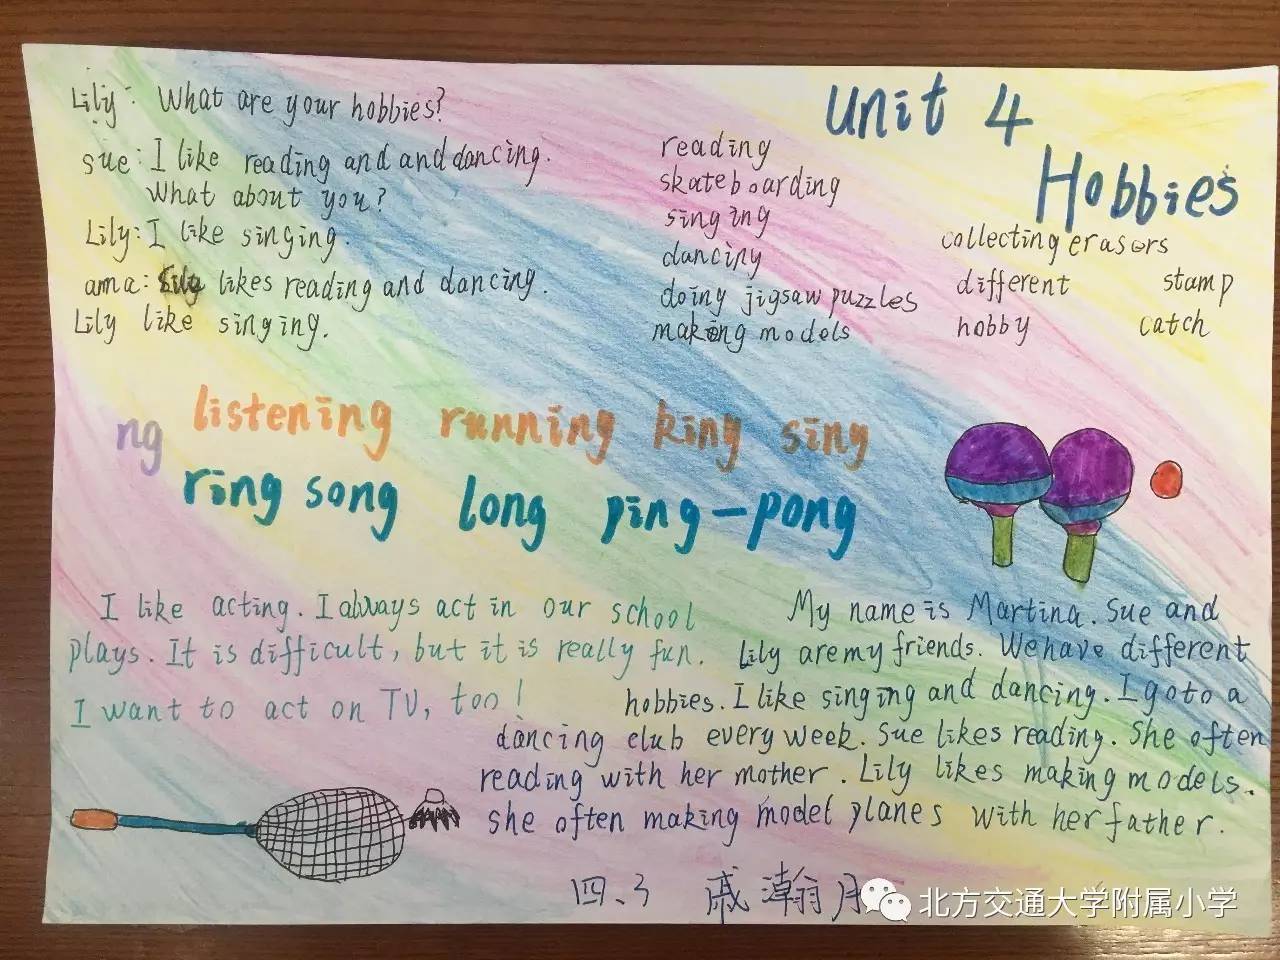 Unit 4
Hobbies
Lily: What are your hobbies?
sue: I like reading and and dancing.
What about you?
Lily: I like singing.
ama: Lily likes reading and dancing.
Lily like singing.
reading
skateboarding
singing
danciny
doing jigsaw puzzles
making models
collecting erasers
different stamp
hobby catch
ng listening running king sing
ring song long ping-pong
I like acting. I always act in our school
plays. It is difficult, but it is really fun.
I want to act on TV, too!
My name is Martina. Sue and
Lily are my friends. We have different
hobbies. I like singing and dancing. I go to a
dancing club every week. Sue likes reading. She often
reading with her mother. Lily likes making models.
she often making model planes with her father.
四、3 戚瀚月
北方交通大学附属小学